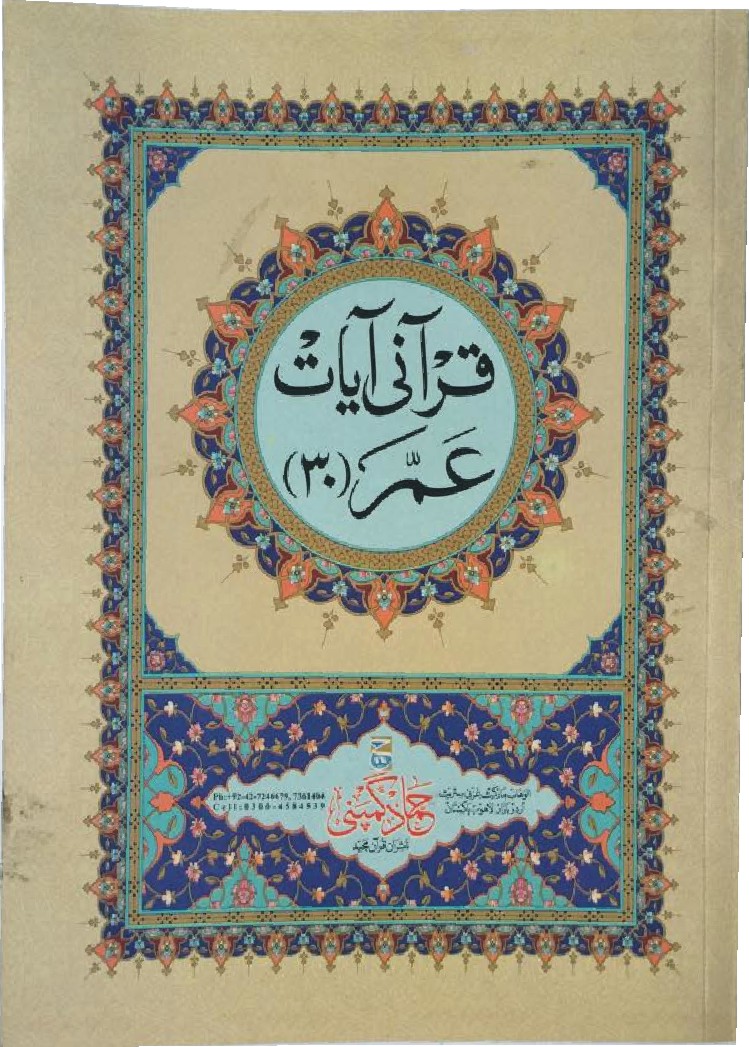 قرآنی آیات
عَمَّ (۳۰)
الوھاب مارکیٹ غزنی سٹریٹ
اردو بازار لاھور پاکستان
حماد کمپنی
ناشران قرآن مجید
Ph:+92-42-7246679, 7361404
Cell:0300-4584539